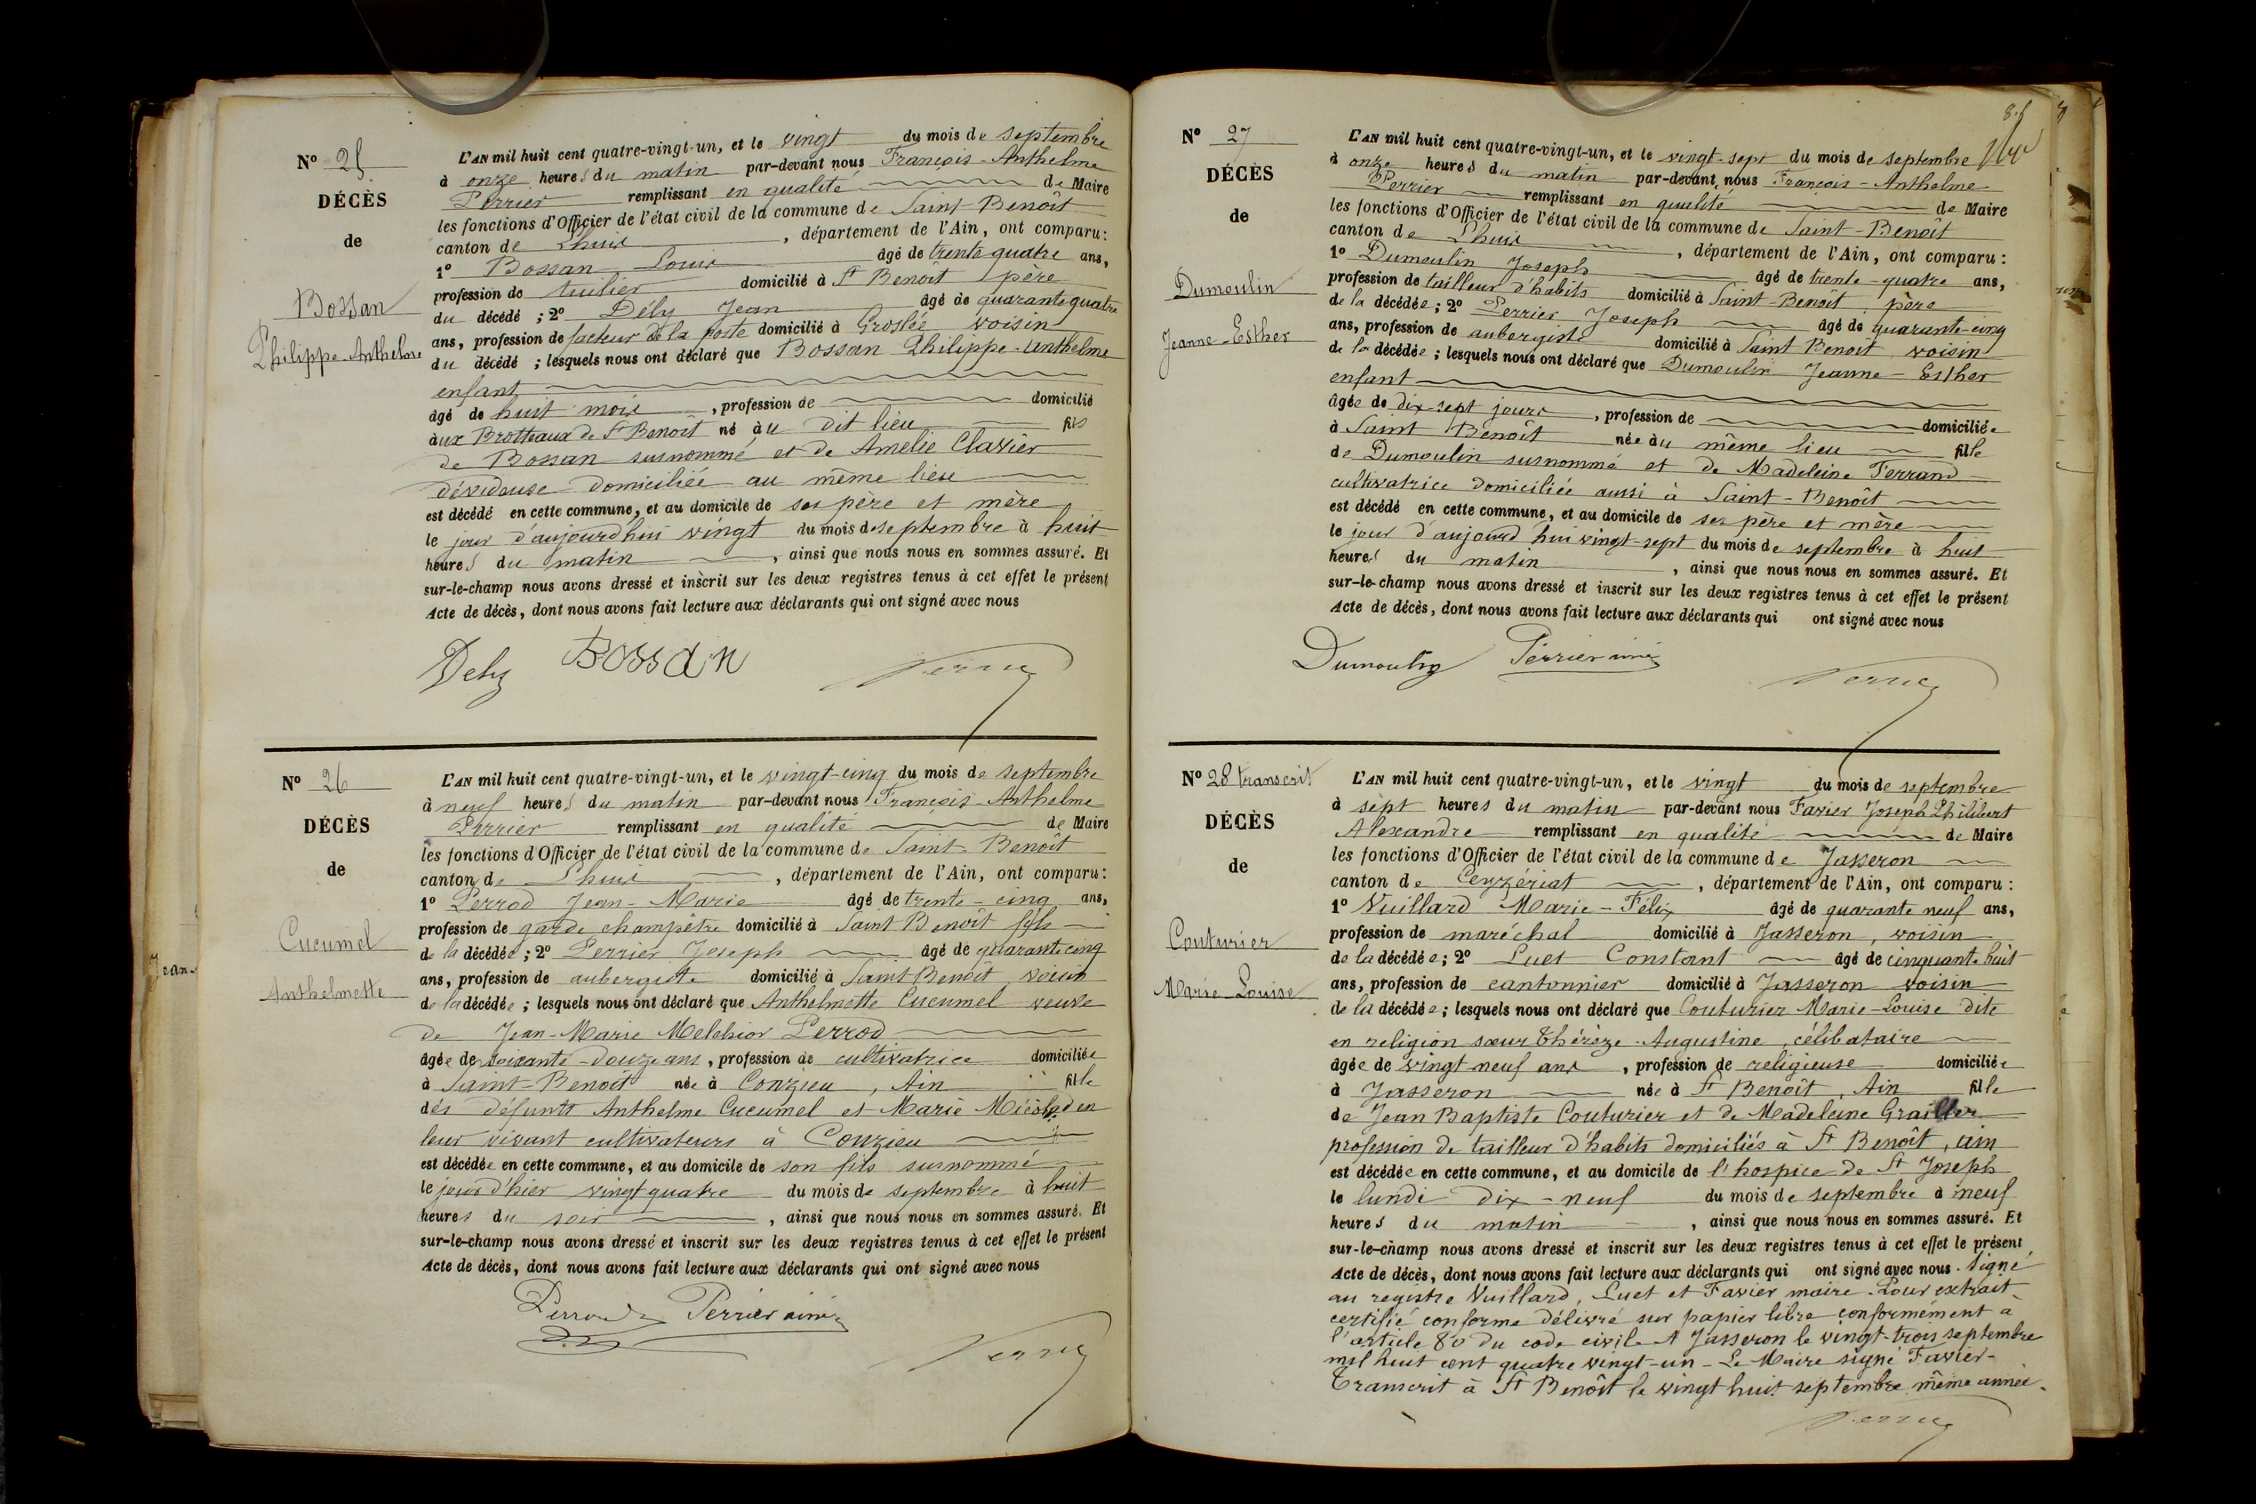 Nº 25
DÉCÈS
de
Bossan
Philippe-Anthelme
L'AN mil huit cent quatre-vingt-un, et le vingt du mois de septembre
à onze heures du matin par-devant nous François-Anthelme
Perrier remplissant en qualité de Maire
les fonctions d'Officier de l'état civil de la commune de Saint-Benoît
canton de Lhuis, département de l'Ain, ont comparu:
1º Bossan Louis âgé de trente quatre ans,
profession de tuilier domicilié à St Benoît père
du décédé ; 2º Dély Jean âgé de quarante quatre
ans, profession de facteur de la poste domicilié à Groslée voisin
du décédé ; lesquels nous ont déclaré que Bossan Philippe-Anthelme
enfant
âgé de huit mois, profession de domicilié
aux Brotteaux de St Benoît né au dit lieu fils
de Bossan susnommé et de Amelie Clavier
dévideuse domiciliée au même lieu
est décédé en cette commune, et au domicile de ses père et mère
le jour d'aujourd'hui vingt du mois de septembre à huit
heures du matin, ainsi que nous nous en sommes assuré. Et
sur-le-champ nous avons dressé et inscrit sur les deux registres tenus à cet effet le présent
Acte de décès, dont nous avons fait lecture aux déclarants qui ont signé avec nous
Dely Bossan
Nº 26
DÉCÈS
de
Cucumel
Anthelmette
L'AN mil huit cent quatre-vingt-un, et le vingt-cinq du mois de septembre
à neuf heures du matin par-devant nous François-Anthelme
Perrier remplissant en qualité de Maire
les fonctions d'Officier de l'état civil de la commune de Saint-Benoît
canton de Lhuis, département de l'Ain, ont comparu:
1º Perrod Jean-Marie âgé de trente-cinq ans,
profession de garde champêtre domicilié à Saint Benoît fils
de la décédée ; 2º Perrier Joseph âgé de quarante cinq
ans, profession de aubergiste domicilié à Saint Benoît voisin
de la décédée ; lesquels nous ont déclaré que Anthelmette Cucumel veuve
de Jean-Marie Melchior Perrod
âgée de soixante-douze ans, profession de cultivatrice domiciliée
à Saint-Benoît née à Conzieu, Ain fille
des défunts Anthelme Cucumel et Marie en
leur vivant cultivateurs à Conzieu
est décédée en cette commune, et au domicile de son fils susnommé
le jour d'hier vingt quatre du mois de septembre à huit
heures du soir, ainsi que nous nous en sommes assuré. Et
sur-le-champ nous avons dressé et inscrit sur les deux registres tenus à cet effet le présent
Acte de décès, dont nous avons fait lecture aux déclarants qui ont signé avec nous
Perrod Perrier ainé
85
Nº 27
DÉCÈS
de
Dumoulin
Jeanne-Esther
L'AN mil huit cent quatre-vingt-un, et le vingt-sept du mois de septembre
à onze heures du matin par-devant nous François-Anthelme
Perrier remplissant en qualité de Maire
les fonctions d'Officier de l'état civil de la commune de Saint-Benoît
canton de Lhuis, département de l'Ain, ont comparu :
1º Dumoulin Joseph âgé de trente-quatre ans,
profession de tailleur d'habits domicilié à Saint-Benoît, père
de la décédée ; 2º Perrier Joseph âgé de quarante-cinq
ans, profession de aubergiste domicilié à Saint Benoît voisin
de la décédée ; lesquels nous ont déclaré que Dumoulin Jeanne-Esther
enfant
âgée de dix-sept jours, profession de domiciliée
à Saint Benoît née au même lieu fille
de Dumoulin susnommé et de Madeleine Ferrand
cultivatrice domiciliée aussi à Saint-Benoît
est décédé en cette commune, et au domicile de ses père et mère
le jour d'aujourd'hui vingt-sept du mois de septembre à huit
heures du matin, ainsi que nous nous en sommes assuré. Et
sur-le-champ nous avons dressé et inscrit sur les deux registres tenus à cet effet le présent
Acte de décès, dont nous avons fait lecture aux déclarants qui ont signé avec nous
Dumoulin Perrier ainé
Nº 28 transcrit
DÉCÈS
de
Couturier
Marie-Louise
L'AN mil huit cent quatre-vingt-un, et le vingt du mois de septembre
à sept heures du matin par-devant nous Favier Joseph Philibert
Alexandre remplissant en qualité de Maire
les fonctions d'Officier de l'état civil de la commune de Jasseron
canton de Ceyzériat, département de l'Ain, ont comparu :
1º Vuillard Marie-Félix âgé de quarante neuf ans,
profession de maréchal domicilié à Jasseron, voisin
de la décédée ; 2º Luet Constant âgé de cinquante huit
ans, profession de cantonnier domicilié à Jasseron voisin
de la décédée ; lesquels nous ont déclaré que Couturier Marie-Louise dite
en religion sœur Thérèze-Augustine, célibataire
âgée de vingt neuf ans, profession de religieuse domiciliée
à Jasseron née à St Benoît, Ain fille
de Jean Baptiste Couturier et de Madeleine Grailler
profession de tailleur d'habits domiciliés à St Benoît, Ain
est décédée en cette commune, et au domicile de l'hospice de St Joseph
le lundi dix-neuf du mois de septembre à neuf
heures du matin, ainsi que nous nous en sommes assuré. Et
sur-le-champ nous avons dressé et inscrit sur les deux registres tenus à cet effet le présent
Acte de décès, dont nous avons fait lecture aux déclarants qui ont signé avec nous. Signé
au registre Vuillard, Luet et Favier maire. Pour extrait
certifié conforme délivré sur papier libre conformément à
l'article 80 du code civil. A Jasseron le vingt-trois septembre
mil huit cent quatre vingt-un - Le Maire signé Favier-
Transcrit à St Benoît le vingt huit septembre même année.